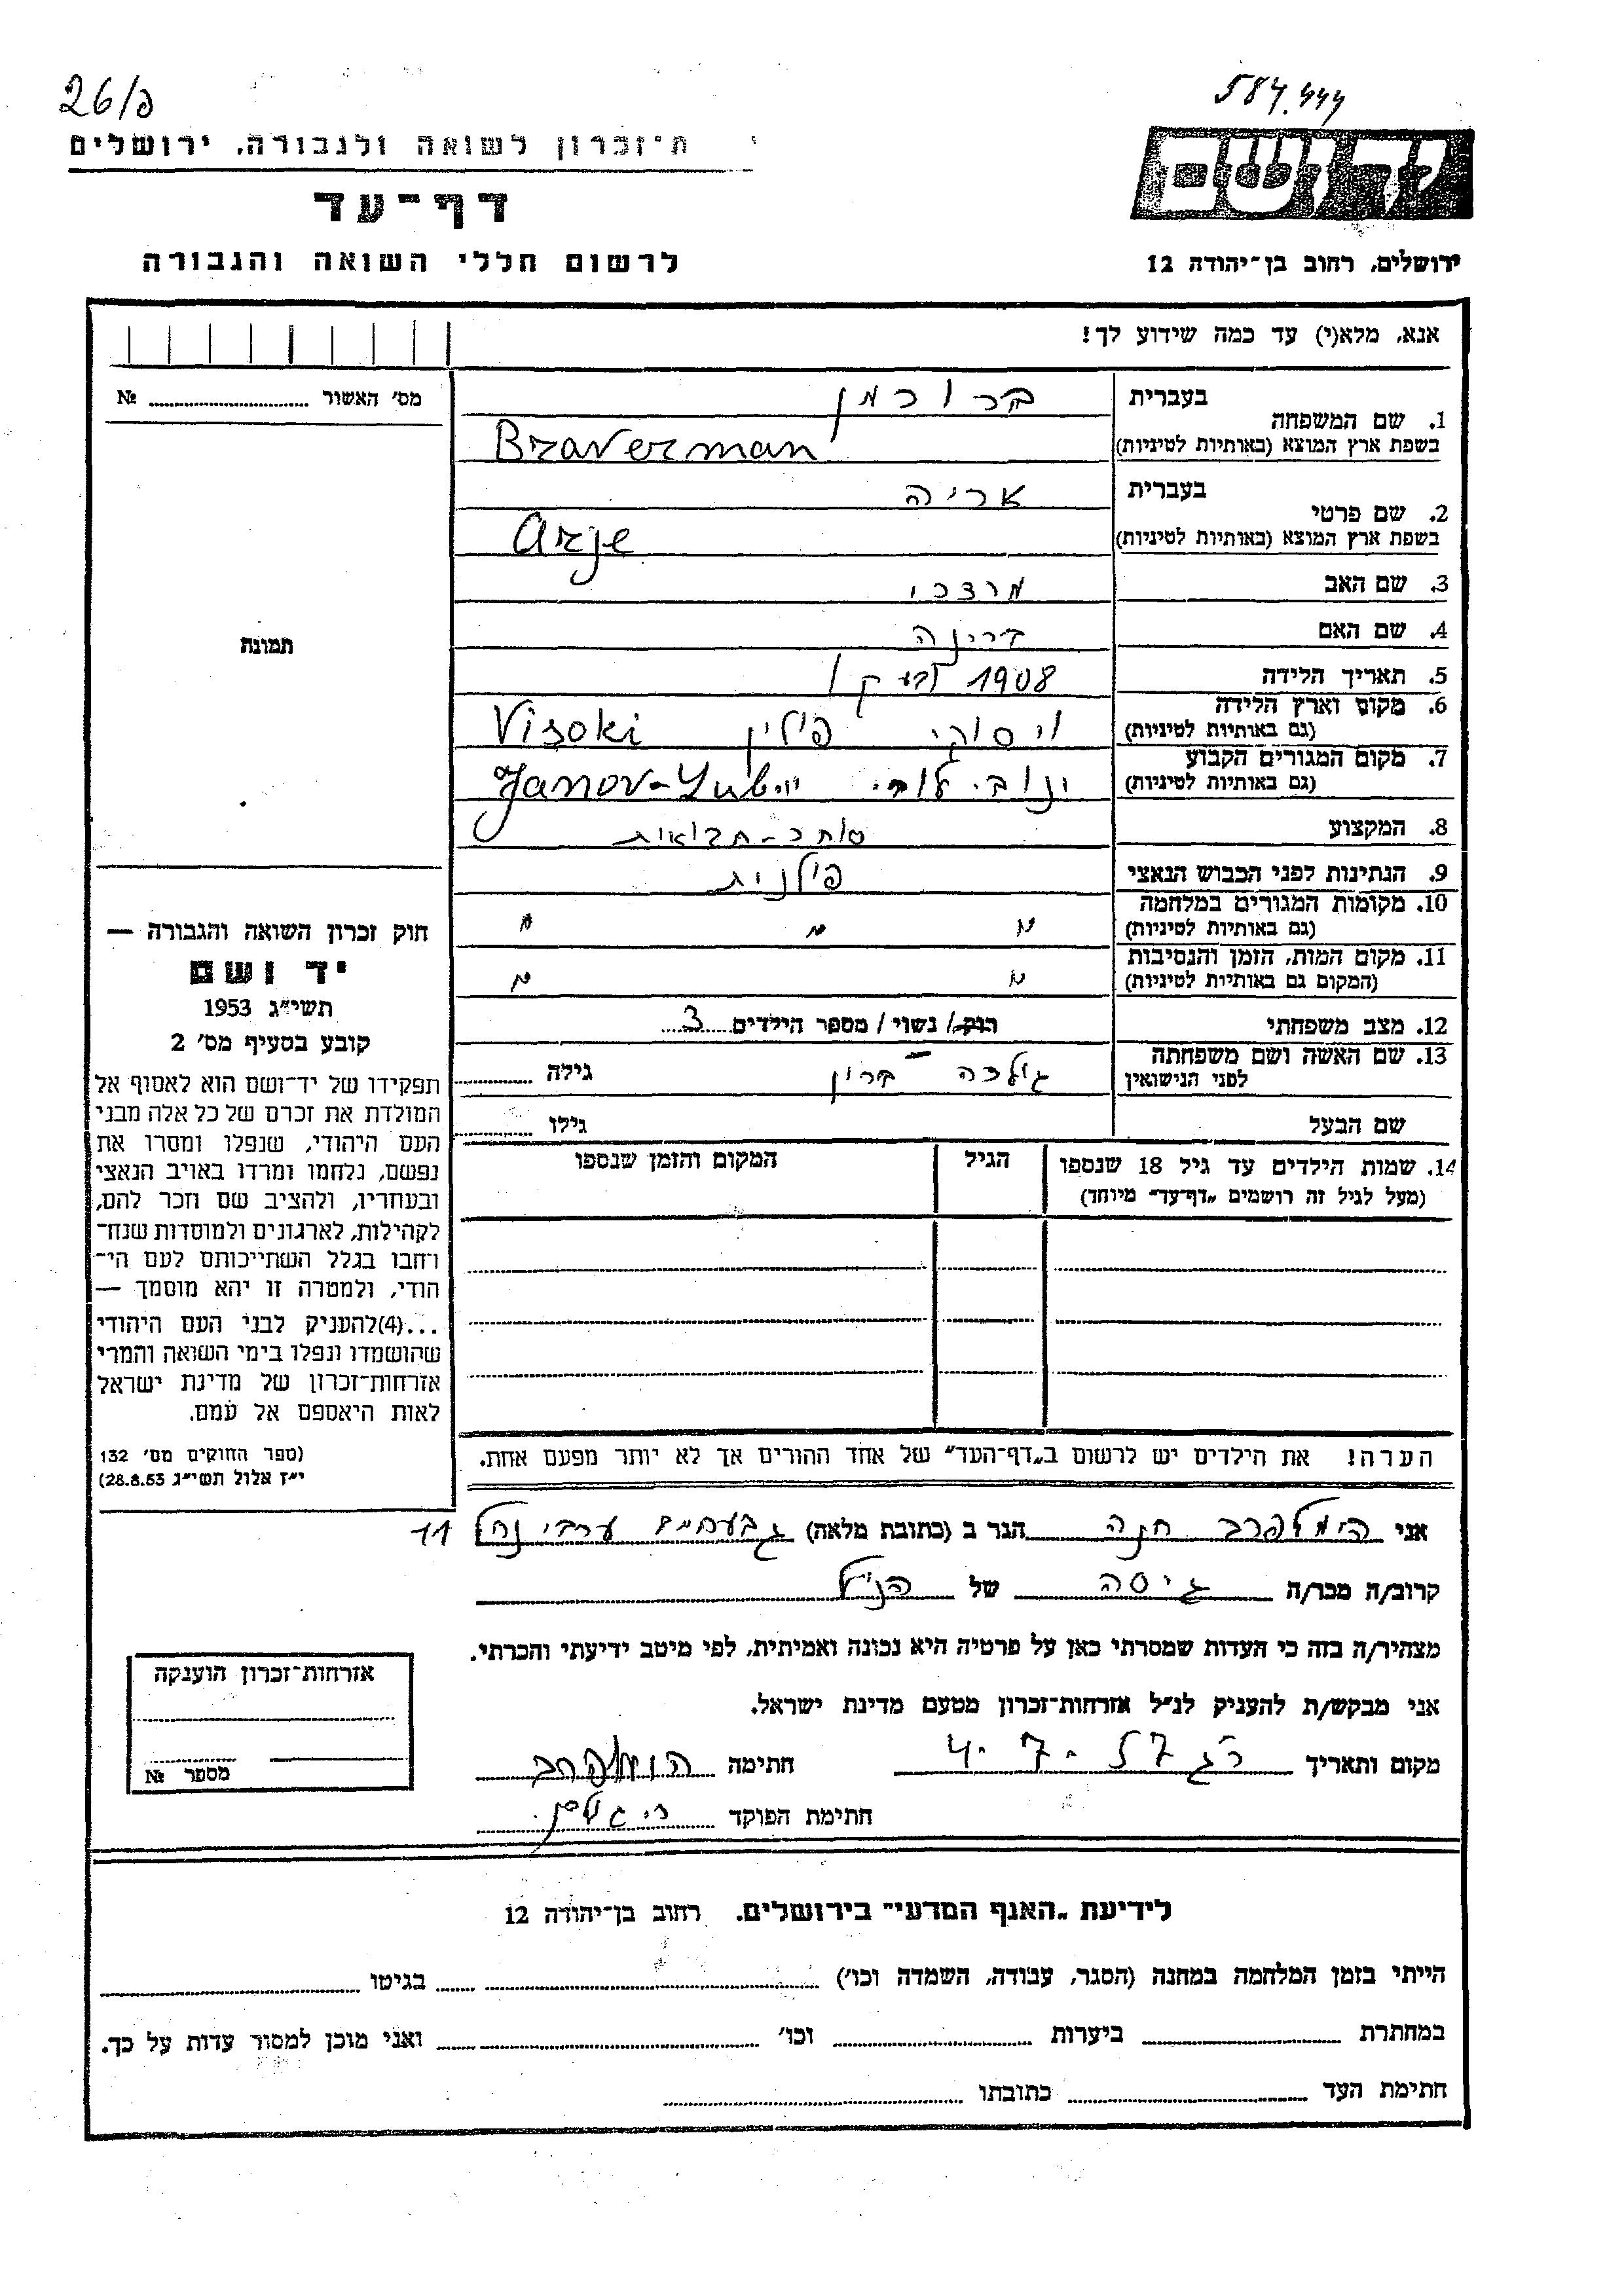 26/פ
587.444
ת־זכרון לשואה ולגבורה, ירושלים
יד ושם
דף־עד
לרשום חללי השואה והגבורה
ירושלים, רחוב בן־יהודה 12
אנא, מלא(י) עד כמה שידוע לך!
מס׳ האשור № 
בעברית
1. שם המשפחה
ברורמן
בשפת ארץ המוצא (באותיות לטיניות)
Braverman
בעברית
2. שם פרטי
אריה
בשפת ארץ המוצא (באותיות לטיניות)
Arje
3. שם האב מרדכי
4. שם האם
5. תאריך הלידה 1908
6. מקום וארץ הלידה
(גם באותיות לטיניות)
ויסוקי פולין Visoki
7. מקום המגורים הקבוע
(גם באותיות לטיניות)
Janov-Lub
8. המקצוע סוחר-תבואות
9. הנתינות לפני הכבוש הנאצי פולנית
10. מקומות המגורים במלחמה
(גם באותיות לטיניות)
11. מקום המות, הזמן והנסיבות
(המקום גם באותיות לטיניות)
12. מצב משפחתי רוק/ נשוי / מספר הילדים 3
13. שם האשה ושם משפחתה
לפני הנישואין
ברון גילה
שם הבעל גילו
14. שמות הילדים עד גיל 18 שנספו
(מעל לגיל זה רושמים „דף־עד״ מיוחד)
הגיל
המקום והזמן שנספו
הערה! את הילדים יש לרשום ב„דף־העד״ של אחד ההורים אך לא יותר מפעם אחת.
תמונה
חוק זכרון השואה והגבורה —
יד ושם
תשי״ג 1953
קובע בסעיף מס׳ 2
תפקידו של יד־ושם הוא לאסוף אל
המולדת את זכרם של כל אלה מבני
העם היהודי, שנפלו ומסרו את
נפשם, נלחמו ומרדו באויב הנאצי
ובעוזריו, ולהציב שם וזכר להם,
לקהילות, לארגונים ולמוסדות שנח־
רבו בגלל השתייכותם לעם הי־
הודי, ולמטרה זו יהא מוסמך —
...(4)להעניק לבני העם היהודי
שהושמדו ונפלו בימי השואה והמרי
אזרחות־זכרון של מדינת ישראל
לאות היאספם אל עמם.
(ספר החוקים מס׳ 132
י״ז אלול תשי״ג 28.8.53)
אני הימלפרב חנה הגר ב (כתובת מלאה) גבעתיים ערבי נחל 11
קרוב/ה מכר/ה גיסה של הנ״ל
מצהיר/ה בזה כי העדות שמסרתי כאן על פרטיה היא נכונה ואמיתית, לפי מיטב ידיעתי והכרתי.
אני מבקש/ת להעניק לנ״ל אזרחות־זכרון מטעם מדינת ישראל.
מקום ותאריך ר״ג 4-7-57 חתימה
חתימת הפוקד
אזרחות־זכרון הוענקה
מספר №
לידיעת „האגף המדעי״ בירושלים, רחוב בן־יהודה 12
הייתי בזמן המלחמה במחנה (הסגר, עבודה, השמדה וכו׳) בגיטו
במחתרת ביערות וכו׳ ואני מוכן למסור עדות על כך.
חתימת העד כתובתו